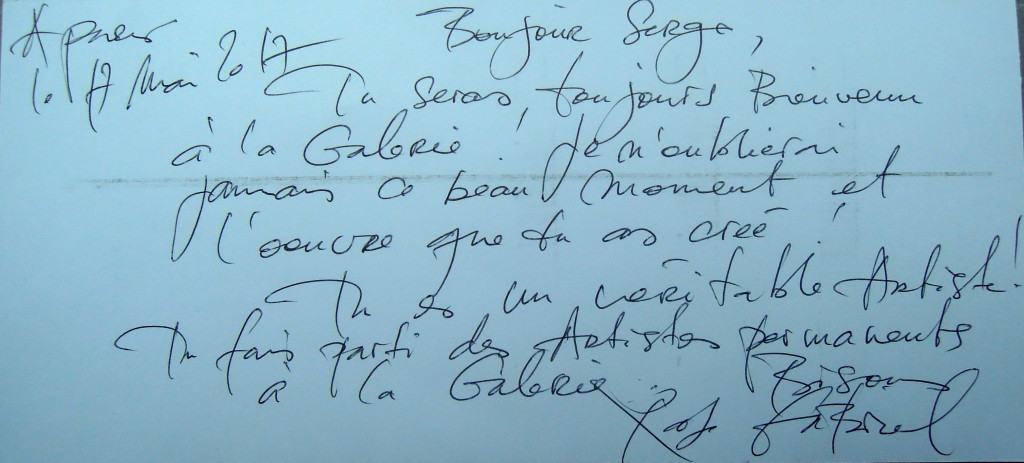 Bonjour Serge,
le 17 Mai 2017
Tu seras toujours Bienvenu
à la Galerie ! Je n'oublierai
jamais ce beau moment et
l'oeuvre que tu as créé !
Tu es un véritable Artiste !
Tu fais parti des Artistes permanents
à la Galerie.